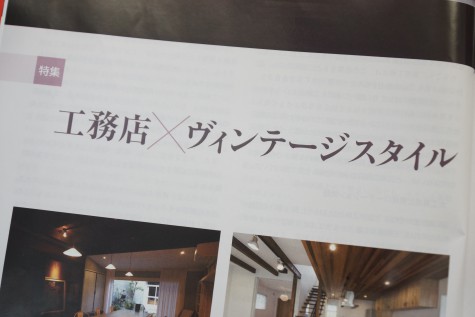 特集
工務店×ヴィンテージスタイル